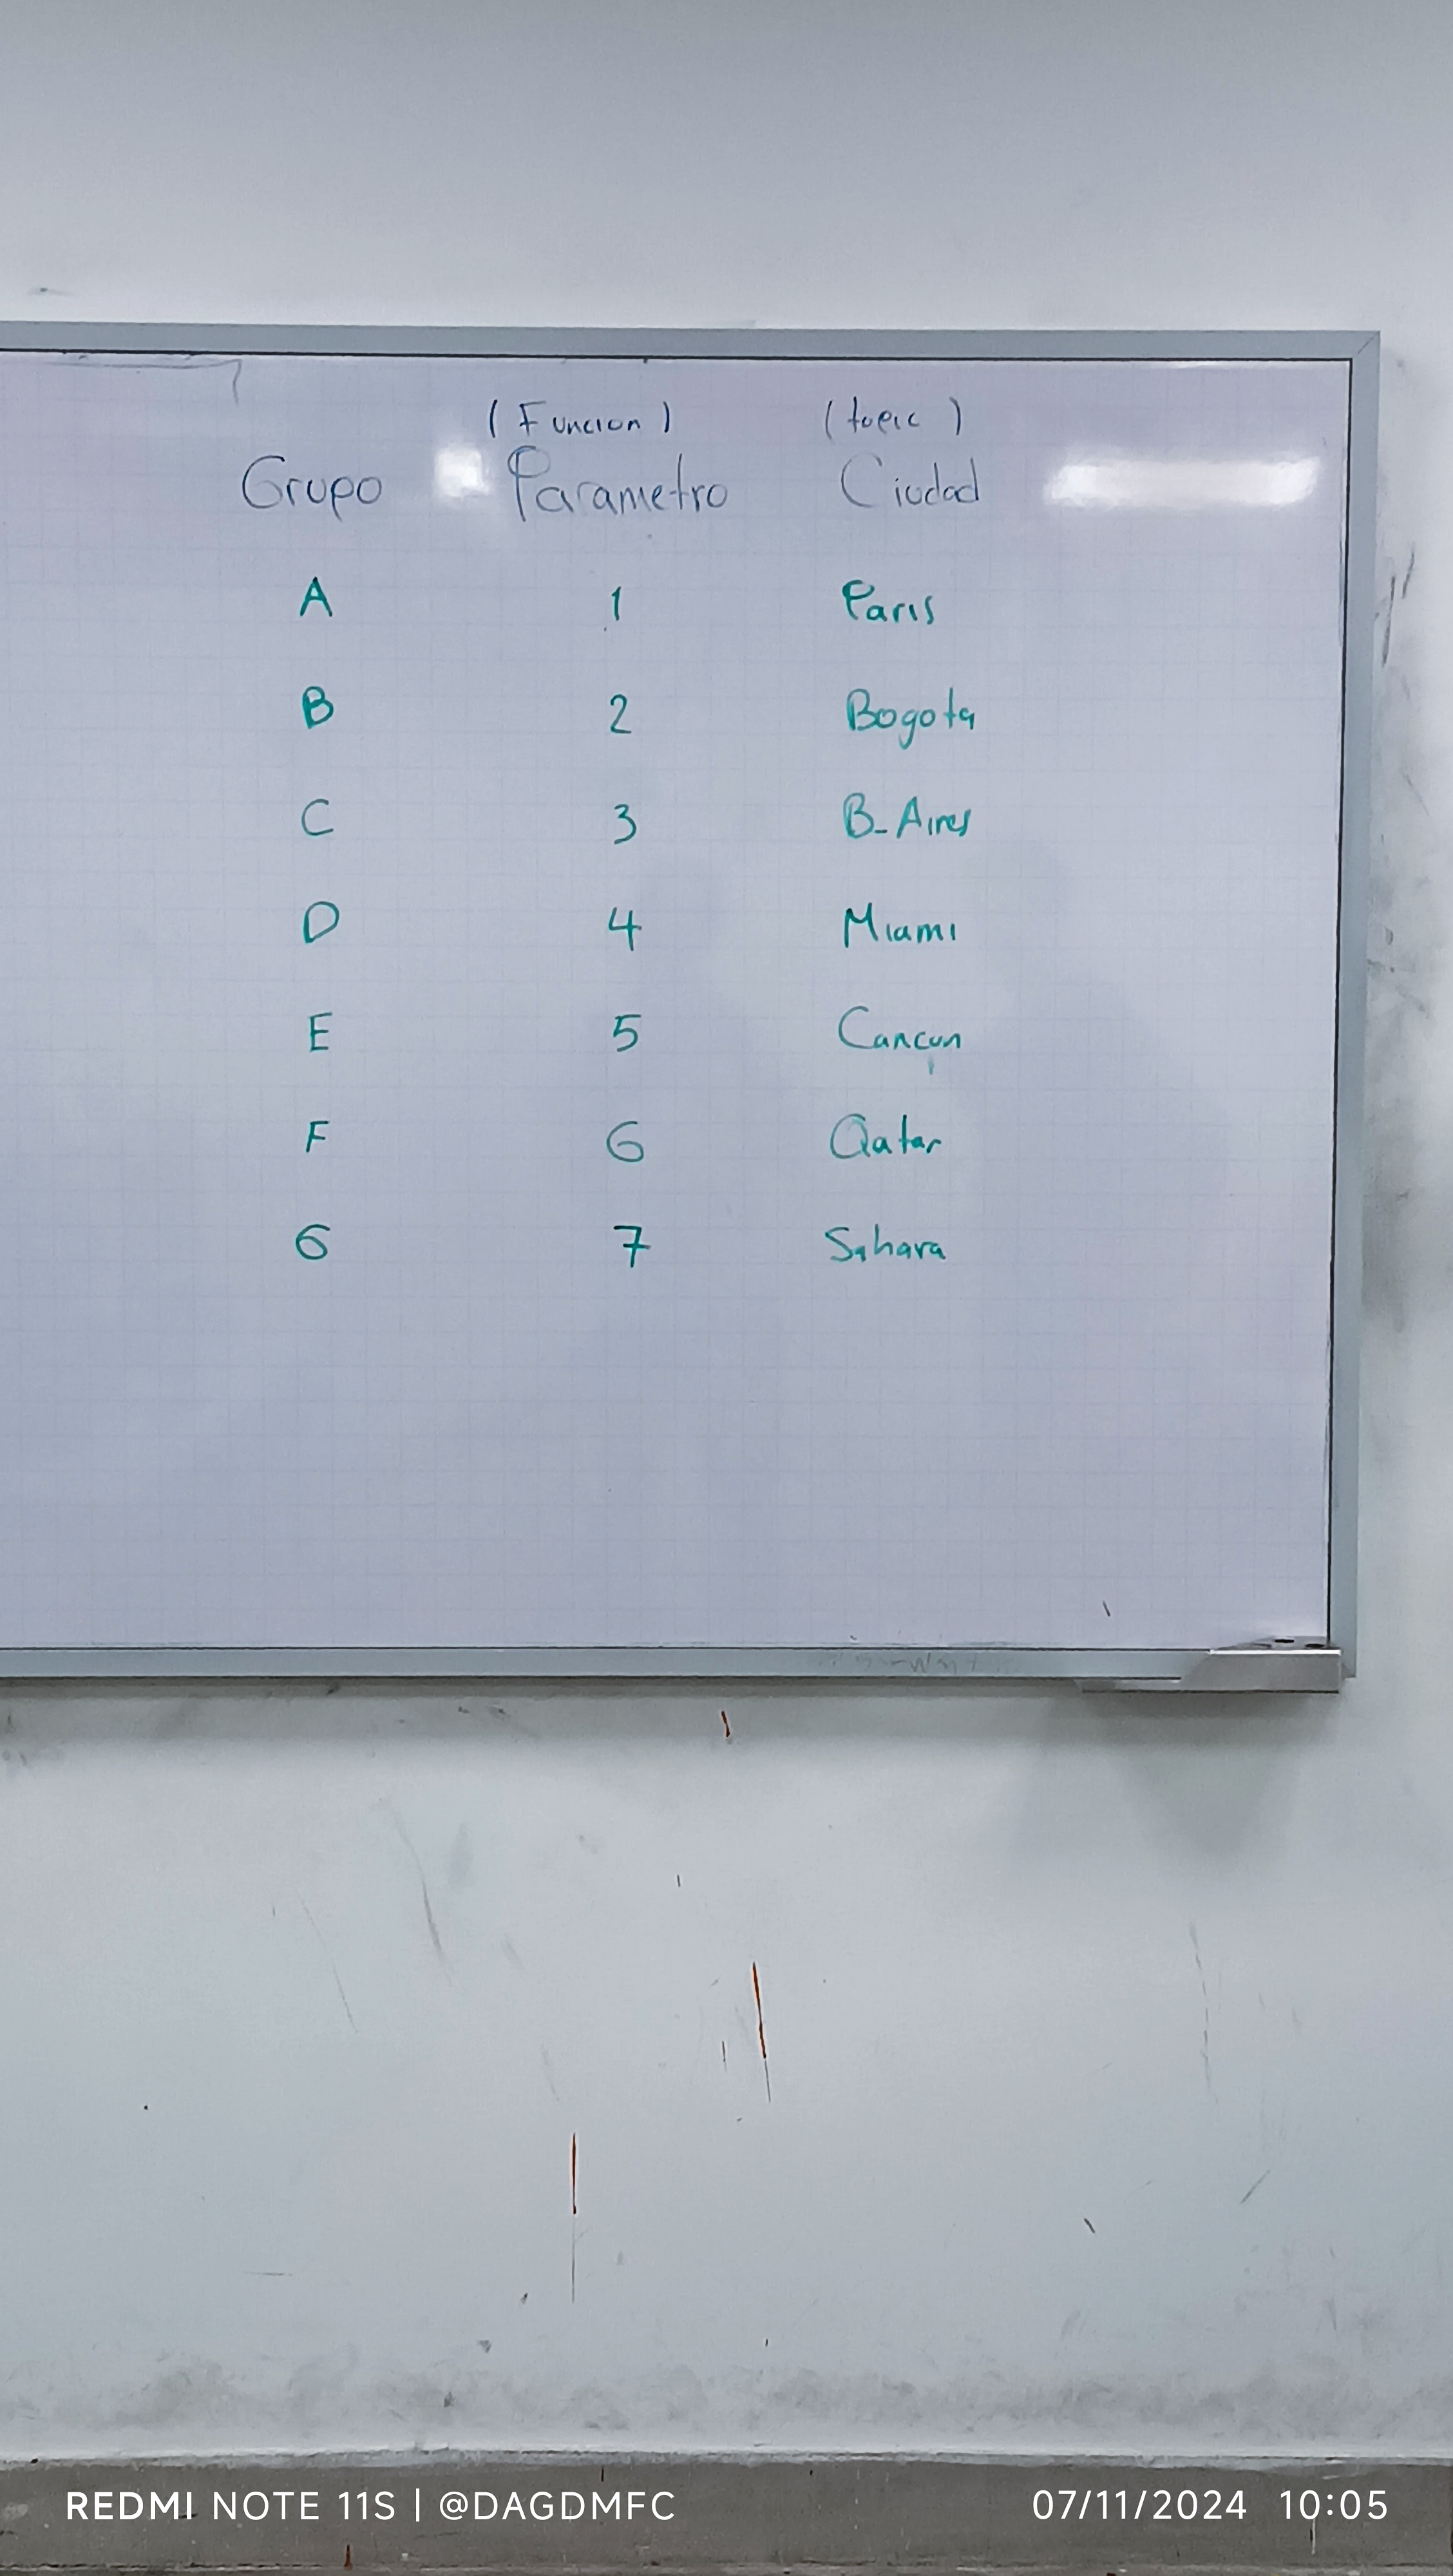 (Funcion) (topic)
Grupo Parametro Ciudad
A 1 Paris
B 2 Bogota
C 3 B-Aires
D 4 Miami
E 5 Cancun
F 6 Qatar
G 7 Sahara
REDMI NOTE 11S | @DAGDMFC 07/11/2024 10:05